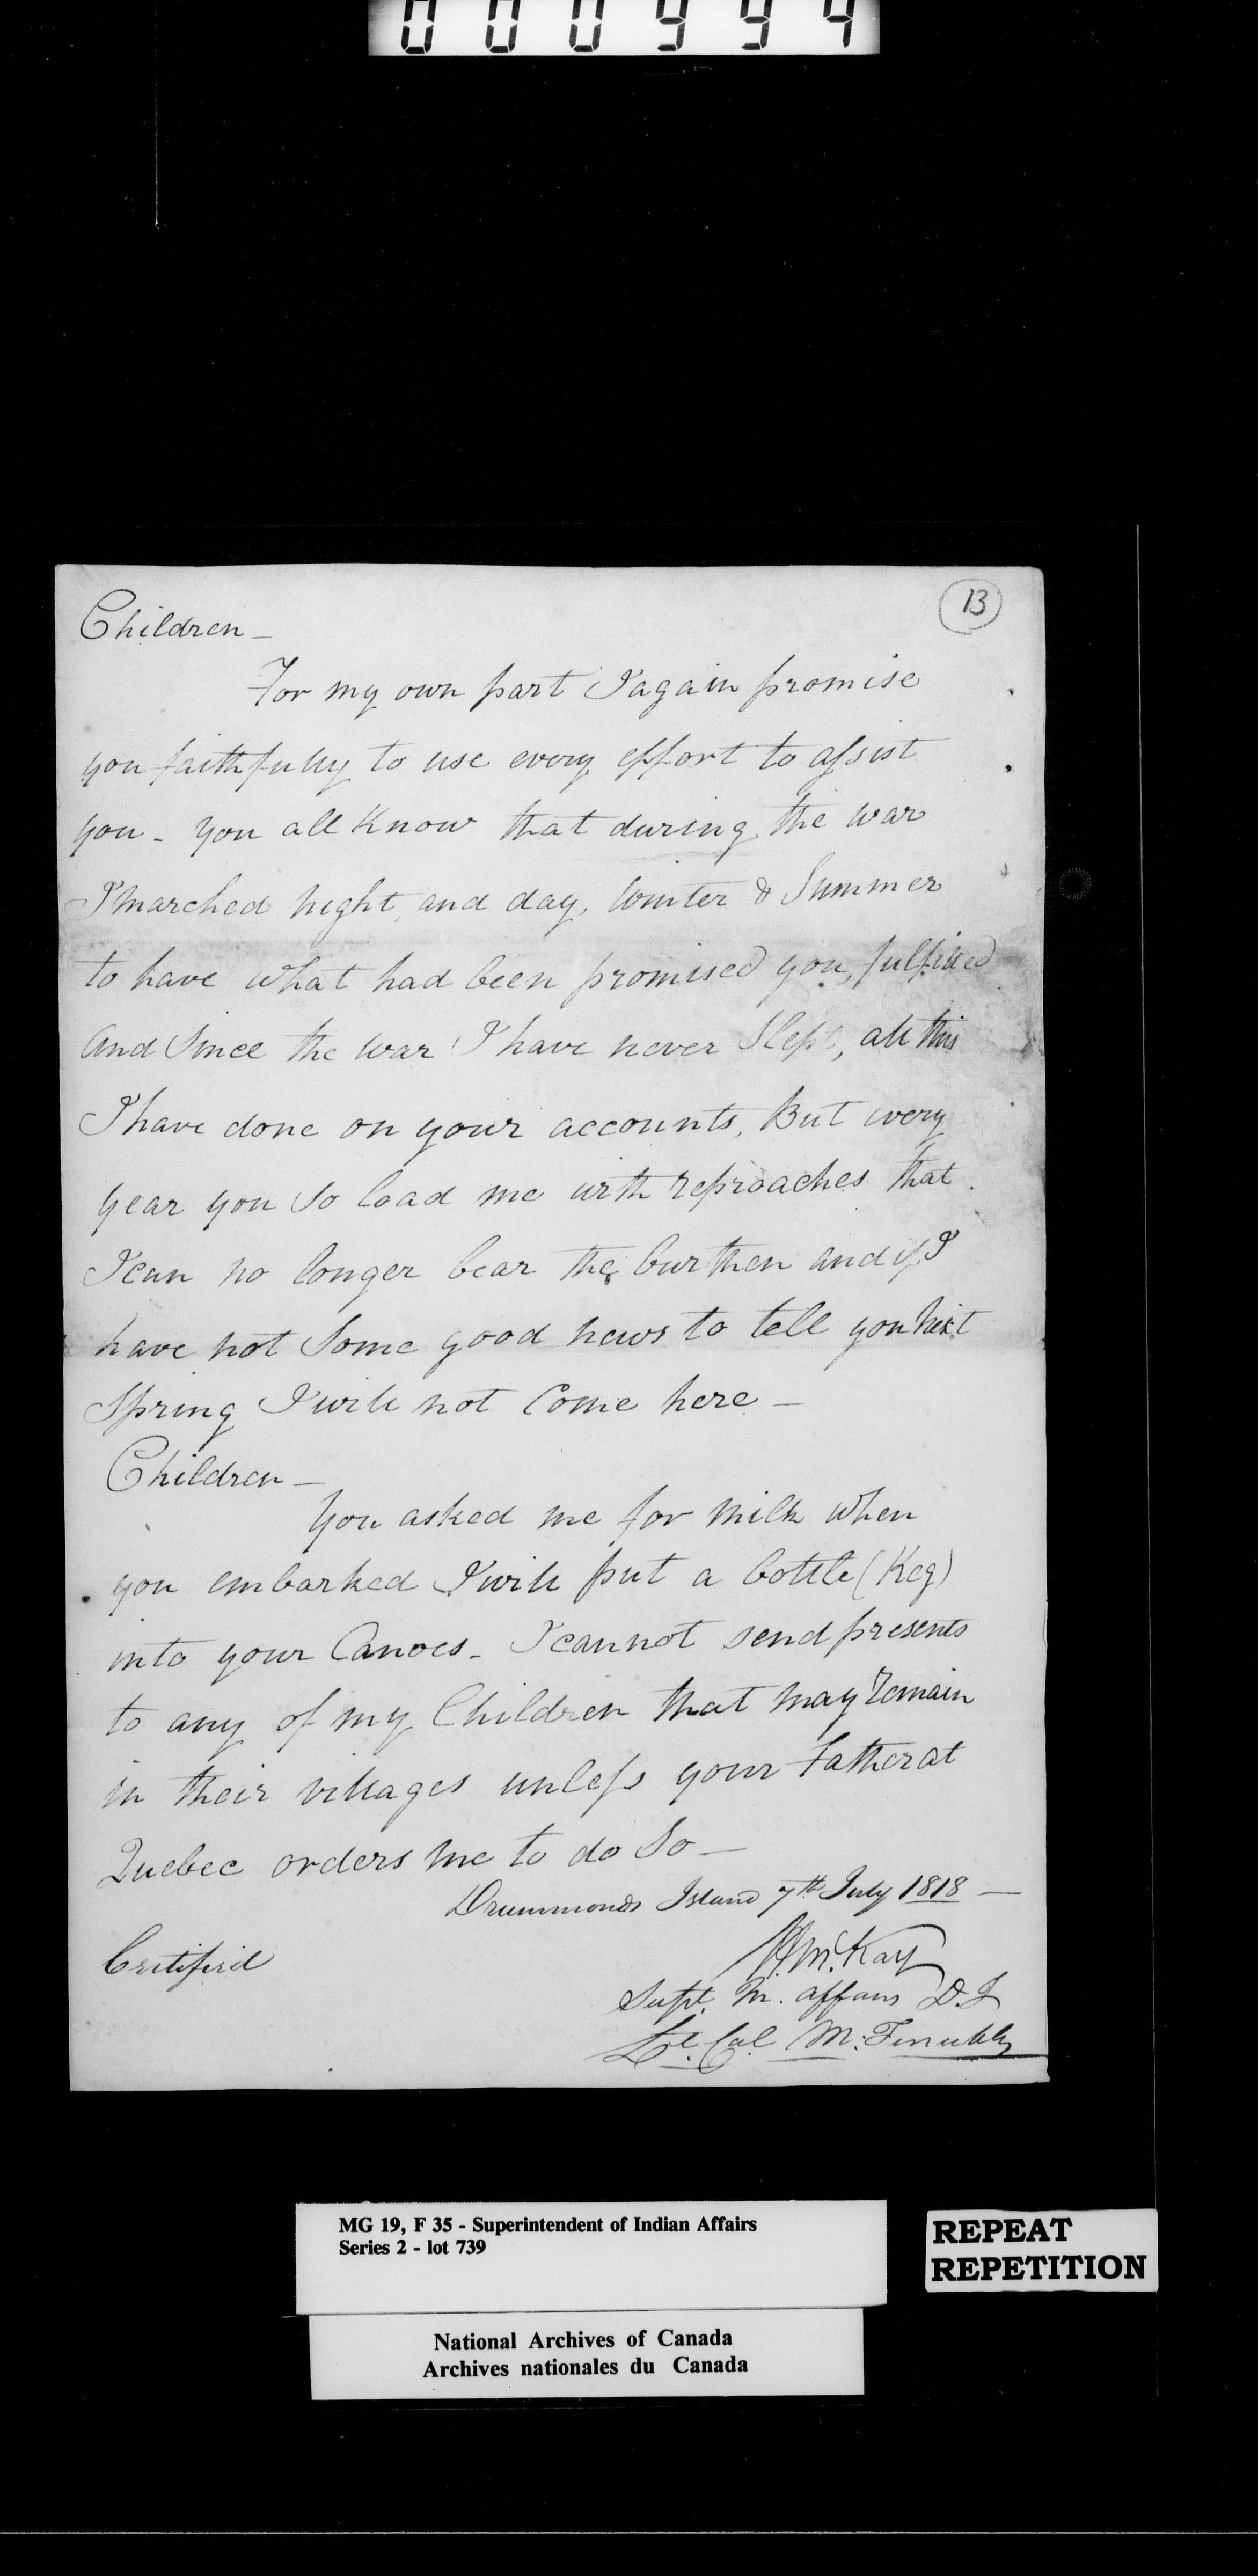 000994
13
Children –
For my own part I again promise
you faithfully to use every effort to assist
you – you all Know that during the war
I marched night and day, Winter & Summer
to have what had been promised you, fulfilled
And Since the War I have never Slept, all this
I have done on your accounts, But every
year you So load me with reproaches that
I can no longer bear the burthen and if I
have not Some good news to tell you next
Spring I will not Come here –
Children –
You asked me for Milk When
you embarked I will put a bottle (Keg)
into your Canoes – I cannot send presents
to any of my Children that may remain
in their villages unless your Father at
Quebec orders me to do So –
Drummonds Island 7th July 1818 –
Certified
McKay
Supt. In. affairs D.I
Lt. Col M:
MG 19, F 35 - Superintendent of Indian Affairs
Series 2 - lot 739
REPEAT
REPETITION
National Archives of Canada
Archives nationales du Canada